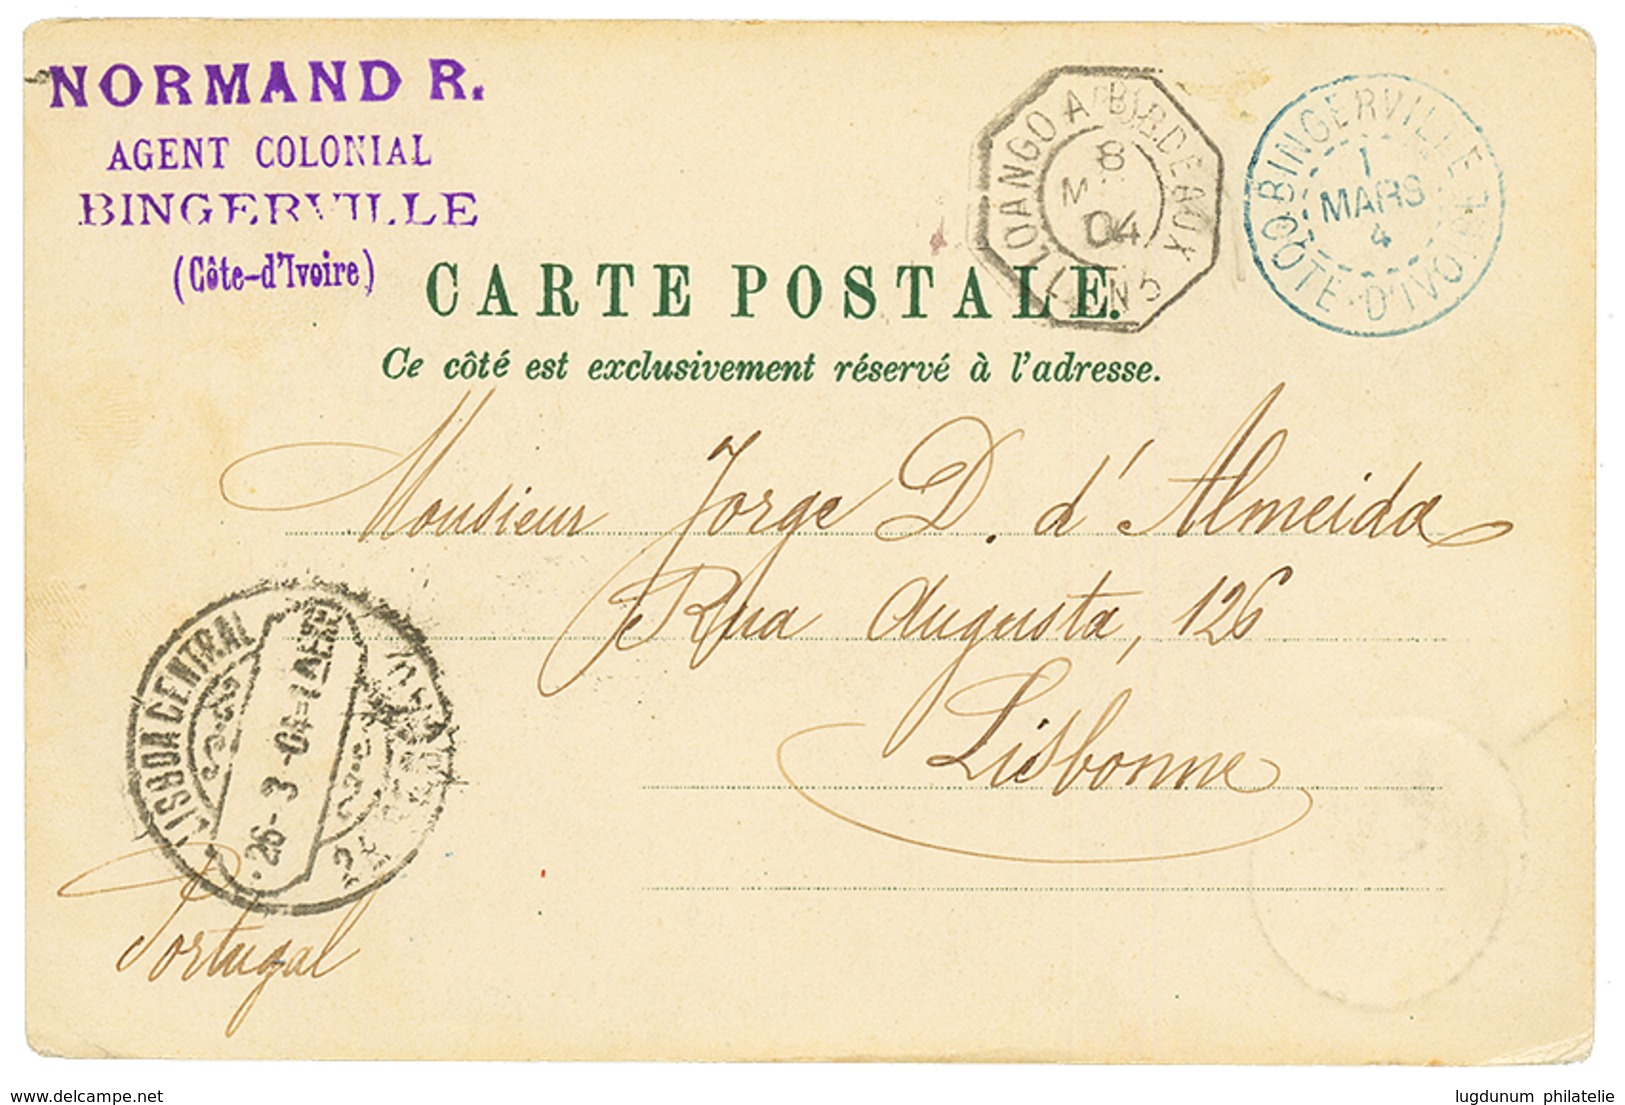 NORMAND R.
AGENT COLONIAL
BINGERVILLE
(Côte-d'Ivoire)
LOANGO A BORDEAUX
8
04
L L N 5
BINGERVILLE
1
MARS
4
CÔTE-D'IVOIRE
CARTE POSTALE.
Ce côté est exclusivement réservé à l'adresse.
Monsieur Jorge D. d'Almeida
Rua Augusta, 126
Lisbonne
Portugal
LISBOA CENTRAL
26-3-04=1
www.delcampe.net
lugdunum philatelie